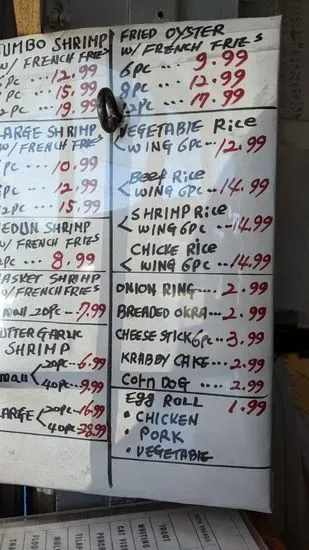 JUMBO SHRIMP
W/ FRENCH FRIES
6PC ... 12.99
PC ... 15.99
2PC ... 19.99
LARGE SHRIMP
W/ FRENCH FRIES
PC ... 10.99
PC ... 12.99
12PC ... 15.99
MEDUN SHRIMP
W/ FRENCH FRIES
PC ... 8.99
BASKET SHRIMP
W/ FRENCH FRIES
SMALL 20PC ... 7.99
BUTTER GARLIC
SHRIMP
SMALL < 20PC ... 6.99
40PC ... 9.99
LARGE < 20PC ... 16.99
40PC ... 28.99
FRIED OYSTER
W/ FRENCH FRIES
6PC ... 9.99
8PC ... 12.99
12PC ... 17.99
VEGETABLE Rice
< WING 6PC ... 12.99
Beef Rice
< WING 6PC ... 14.99
SHRIMP Rice
< WING 6PC ... 14.99
CHICKE Rice
< WING 6PC ... 14.99
ONION RING ... 2.99
BREADED OKRA ... 2.99
CHEESE STICK 6PC ... 3.99
KRABBY CAKE ... 2.99
CORN DOG .... 2.99
EGG ROLL 1.99
• CHICKEN
• PORK
• VEGETABLE
WITH BREADS
TROUT
WHITING
CAT FISH
TILAP
MUL
FLOU
SNA